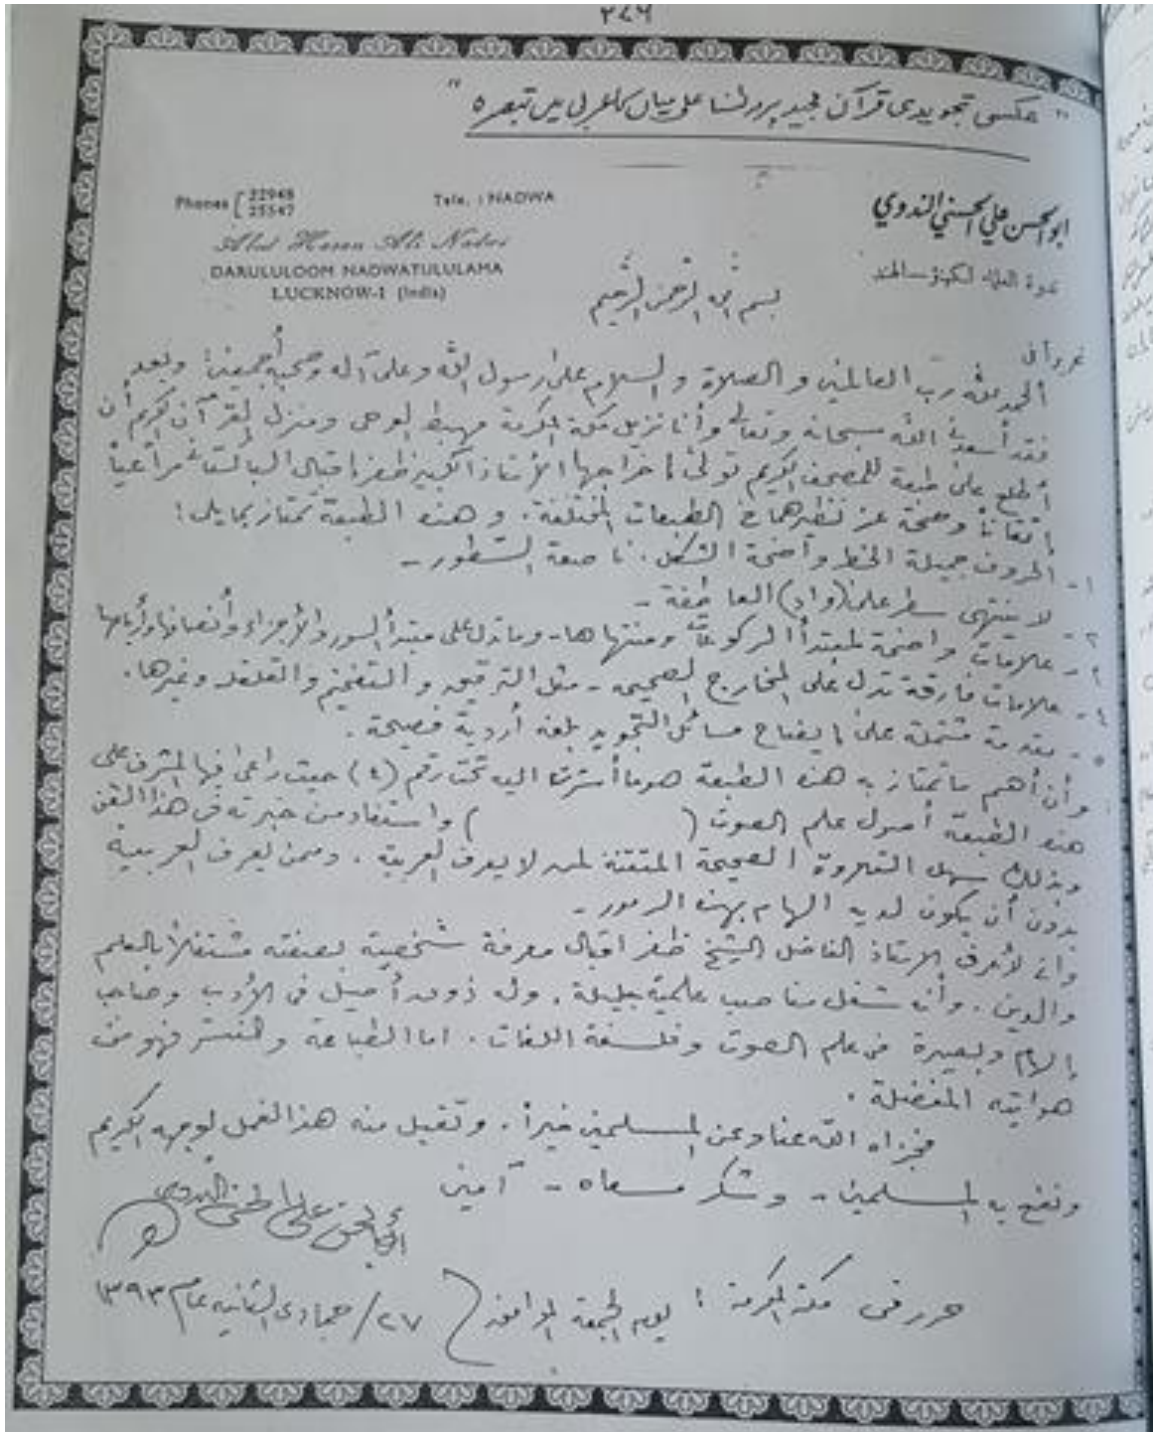 ٢٤٦
" عکسی تجویدی قرآن مجید پر مولٰنا علی میاں کا عربی میں تبصرہ "
Phones [ 22948 25547
Tele. : NADWA
ابو الحسن علي الحسني الندوي
Abul Hasan Ali Nadwi
DARULULOOM NADWATULULAMA
ندوة العلماء لكهنؤ - الهند
LUCKNOW-1 (India)
بسم الله الرحمن الرحيم
الحمد لله رب العالمين و الصلاة و السلام على رسول الله وعلى آله وصحبه أجمعين: وبعد
فقد أسعدني الله سبحانه وتعالى وأنا نزيل مكة المكرمة مهبط الوحى ومنزل القرآن الكريم أن
أطلع على طبعة للمصحف الكريم تولى إخراجها الأستاذ الكبير ظفر إقبال
إتقاناً وصحة عز نظيرهما في الطبعات المختلفة. و هذه الطبعة تمتاز بما يلى:
١- الحروف جميلة الخط واضحة الشكل. ناصعة السطور -
٢- لا ينتهى سطر على (واو) العاطفة -
٣- علامات واضحة لمبتدأ الركوعات ومنتهاها - وما تدل على مبتدأ السور والأجزاء وأنصافها وأرباعها
٤- علامات فارقة تدل على المخارج الصحيحة - مثل الترقيق و التفخيم والقلقلة وغيرها.
٥- مقدمة مشتملة على إيضاح مسائل التجويد بلغة أردية فصيحة.
وأن أهم ما تمتاز به هذه الطبعة هو ما أشرت اليه تحت رقم (٤) حيث راعى فيها المشرف على
هذه الطبعة أصول علم الصوت ( ) واستفاد من خبرته فى هذا الفن
وبذلك سهل التلاوة الصحيحة المتقنة لمن لا يعرف العربية. وممن يعرف العربية
بدون أن يكون لديه إلهام بهذه الرموز -
وإني لأعرف الاستاذ الفاضل الشيخ ظفر اقبال معرفة شخصية بصفته مشتغلاً بالعلم
والدين. وأنه شغل مناصب علمية جليلة. وله ذوق أصيل فى الأدب وصاحب
إلمام وبصيرة في علم الصوت وفلسفة اللغات. اما الطباعة والنشر فهو من
هواياته المفضلة.
فجزاه الله عنا وعن المسلمين خيراً. وتقبل منه هذا العمل لوجهه الكريم
ونفع به المسلمين - وشكر مسعاه - آمين
أبو الحسن علي الحسني الندوي
حرر فى مكة المكرمة : يوم الجمعة الموافق ( ٢٧ / جمادى الثانيه عام ١٣٩٣